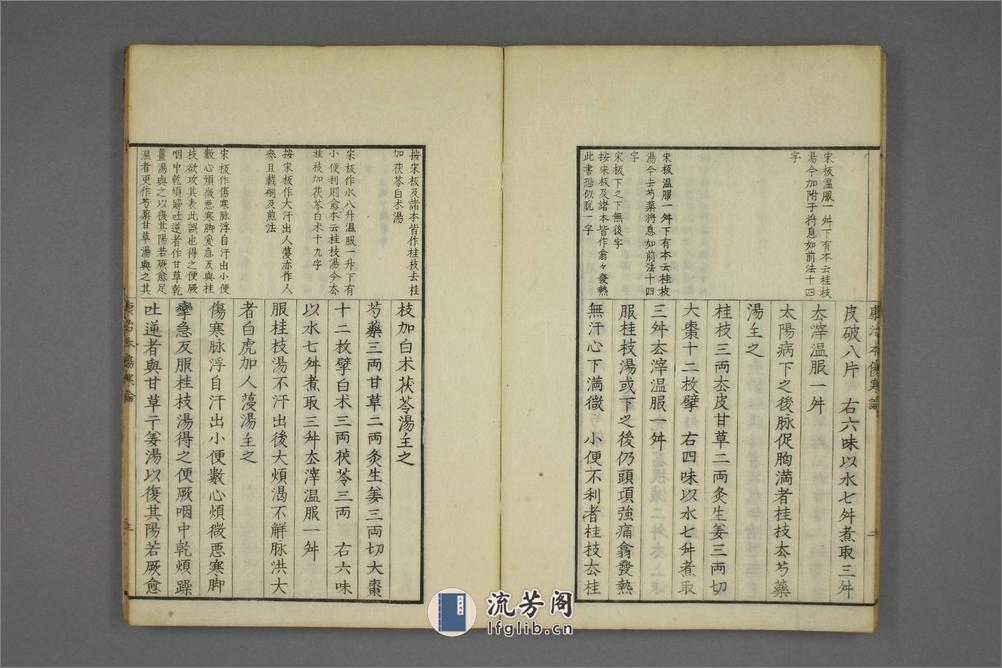 宋板溫服一舛下有本云桂枝
湯今加附子將息如前法十四
字
宋板溫服一舛下有本云桂枝
湯今去芍藥將息如前法十四
字
宋板下之下無後字
按宋板及諸本皆作翕々發熱
此書恐似脫一字
康治本傷寒論
皮破八片　右六味以水七舛煮取三舛
厺滓溫服一舛
太陽病下之後脉促胸滿者桂枝厺芍藥
湯主之
桂枝三兩厺皮甘草二兩炙生姜三兩切
大棗十二枚擘　右四味以水七舛煮取
三舛厺滓溫服一舛
服桂枝湯或下之後仍頭項強痛翕發熱
無汗心下滿微　小便不利者桂枝厺桂
按宋板及諸本皆作桂枝去桂
加茯苓白术湯
宋板作水八升溫服一升下有
小便利則愈本云桂枝湯今厺
桂枝加茯苓白术十九字
按宋板作大汗出人薓亦作人
參且載朔及煎法
宋板作傷寒脉浮自汗出小便
數心煩微惡寒脚攣急反與桂
枝欲攻其表此誤也得之便厥
咽中乾煩躁吐逆者作甘草乾
薑湯與之以復其陽若厥愈足
溫者更作芍藥甘草湯與之其
枝加白术茯苓湯主之
芍藥三兩甘草二兩炙生姜三兩切大棗
十二枚擘白术三兩茯苓三兩　右六味
以水七舛煮取三舛厺滓溫服一舛
服桂枝湯不汗出後大煩渴不解脉洪大
者白虎加人薓湯主之
傷寒脉浮自汗出小便數心煩微惡寒脚
攣急反服桂枝湯得之便厥咽中乾煩躁
吐逆者與甘草干姜湯以復其陽若厥愈
康治本傷寒論
流芳阁
lfglib.cn